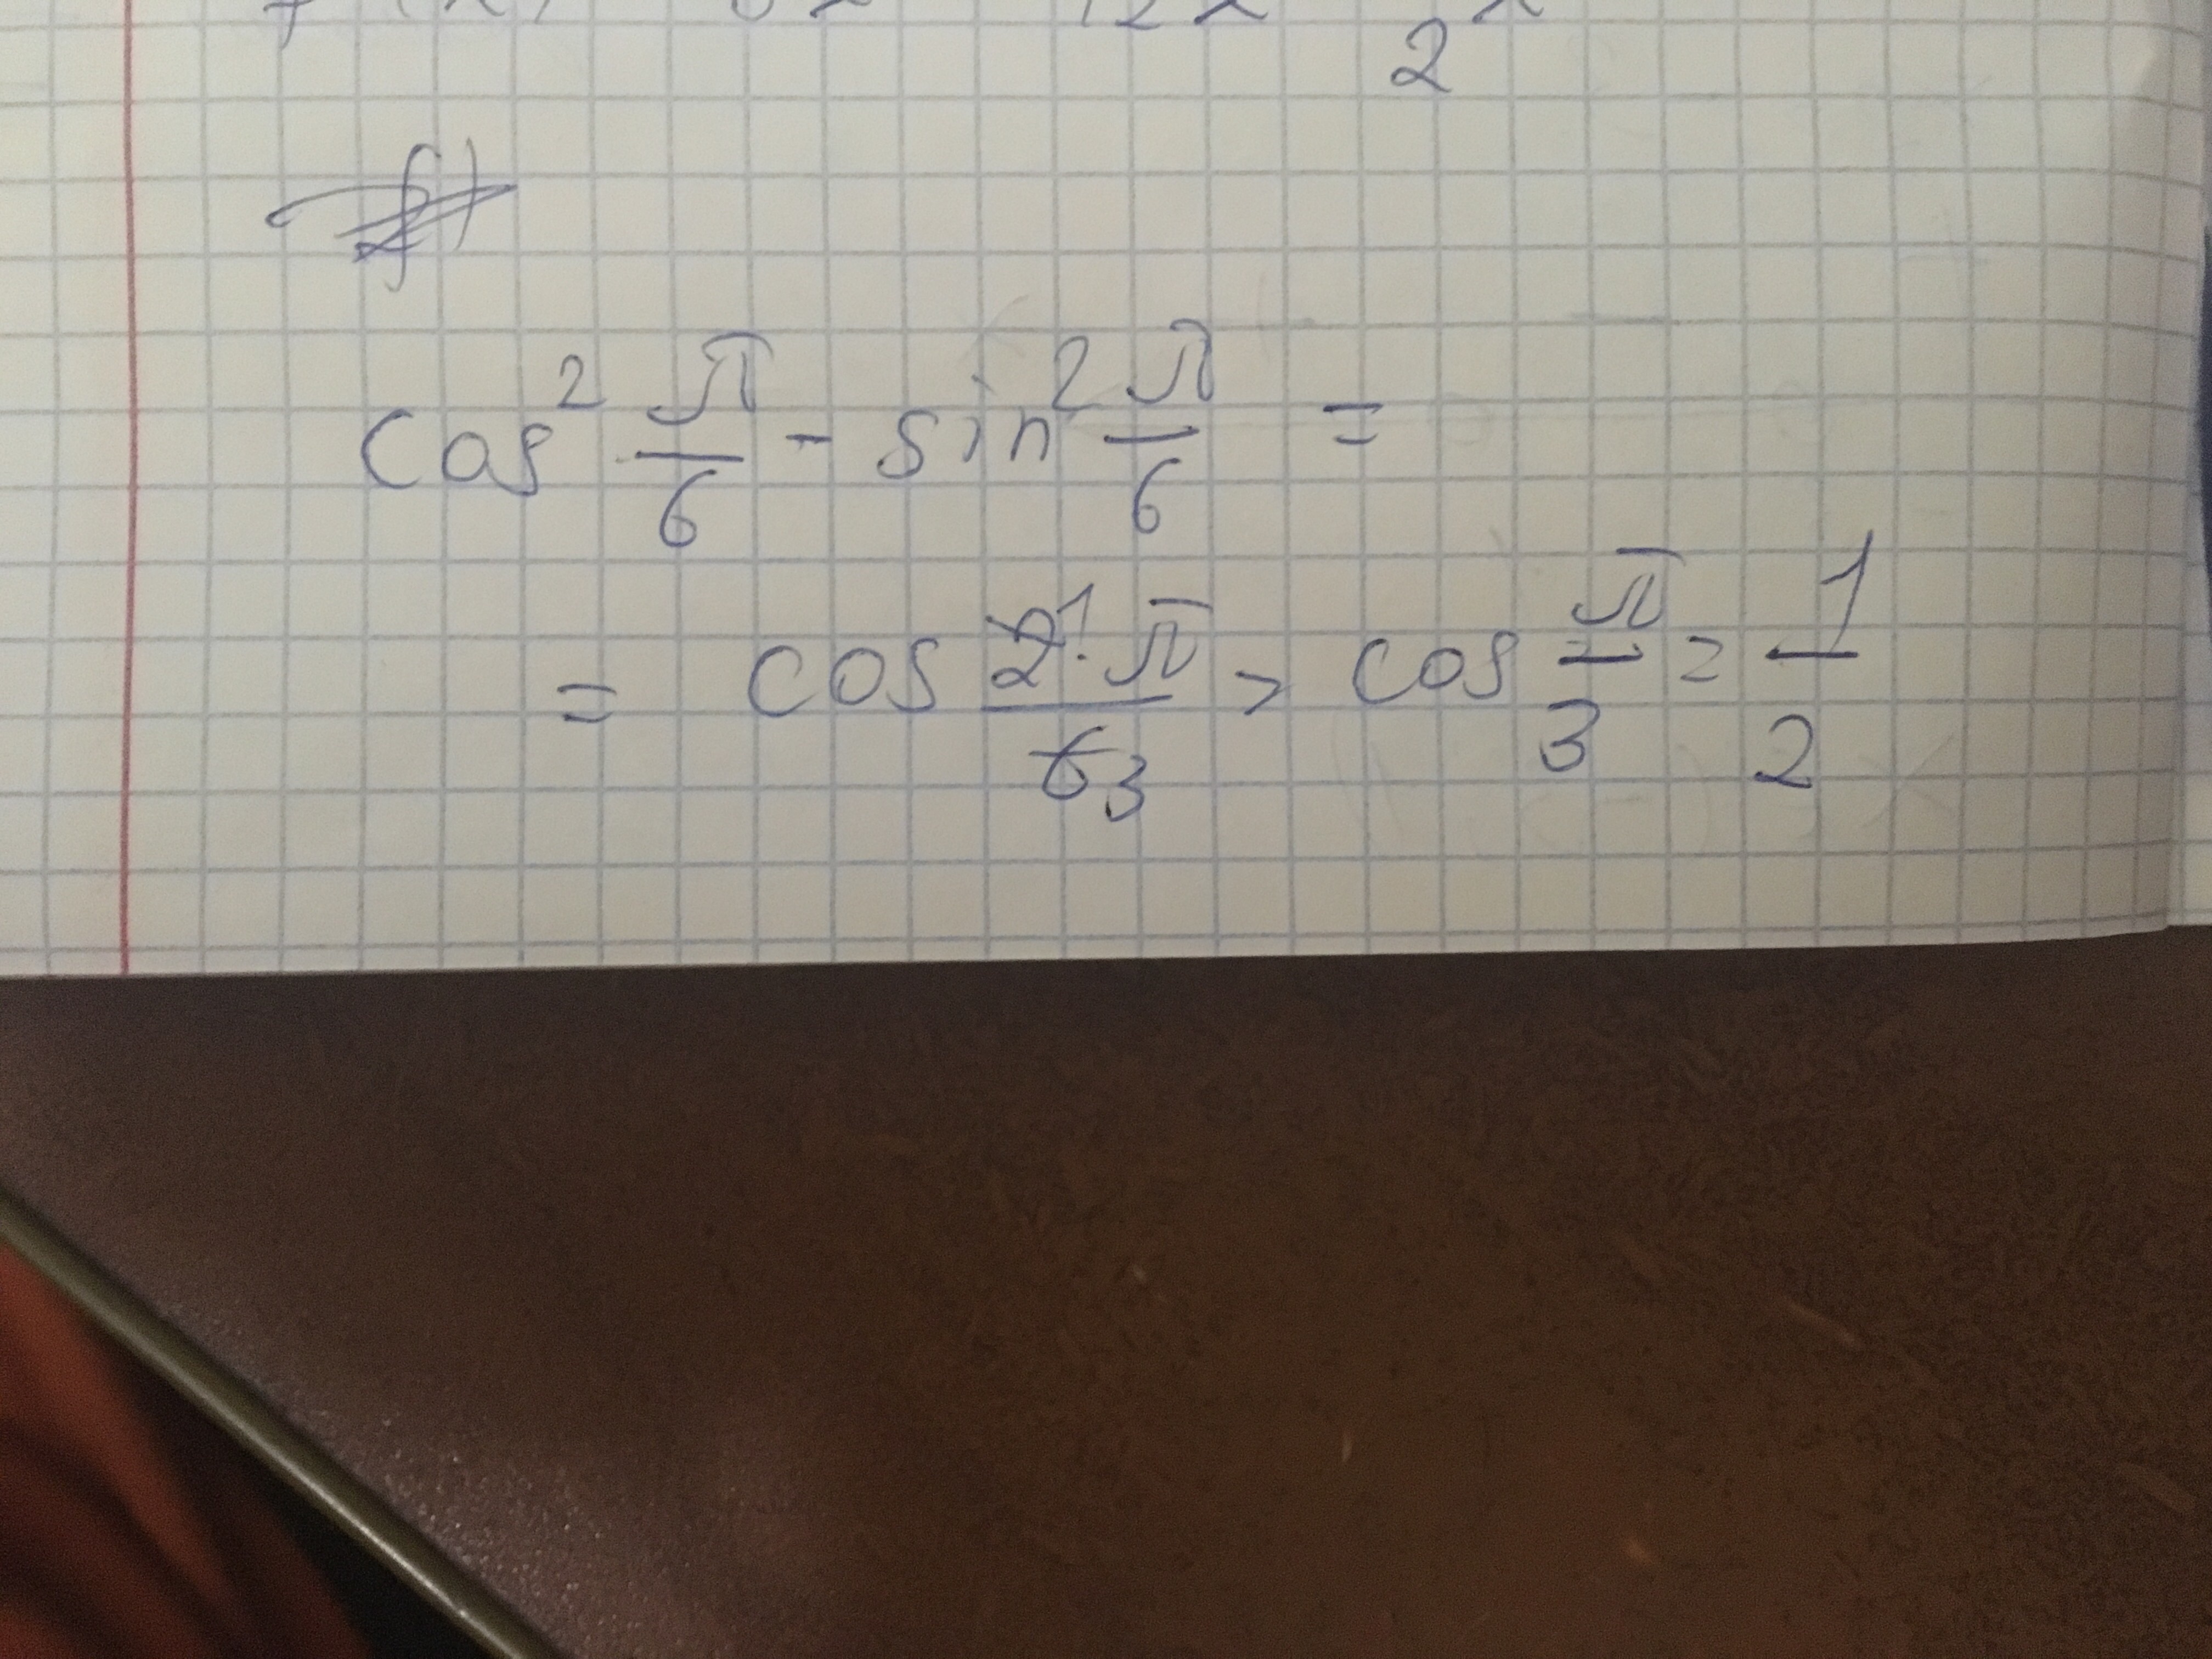 2
cos² π/6 - sin² π/6 =
= cos 2¹·π/6₃ = cos π/3 = 1/2